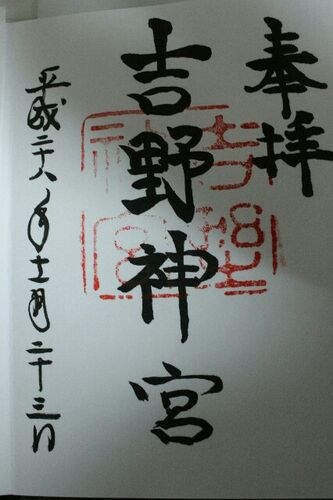 奉拝
吉野神宮
平成二十八年十一月二十三日